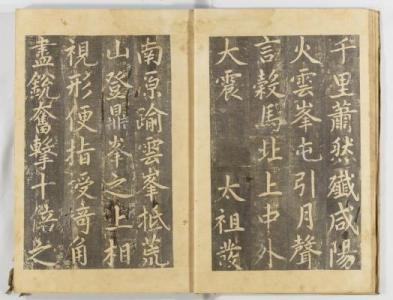 千里蕭然殲咸陽
火雲峯屯引月聲
言穀馬北上中外
大震　太祖發
南原踰雲峯抵荒
山登鼎峯之上相
視形便指授奇角
盡銳奮擊十倍之